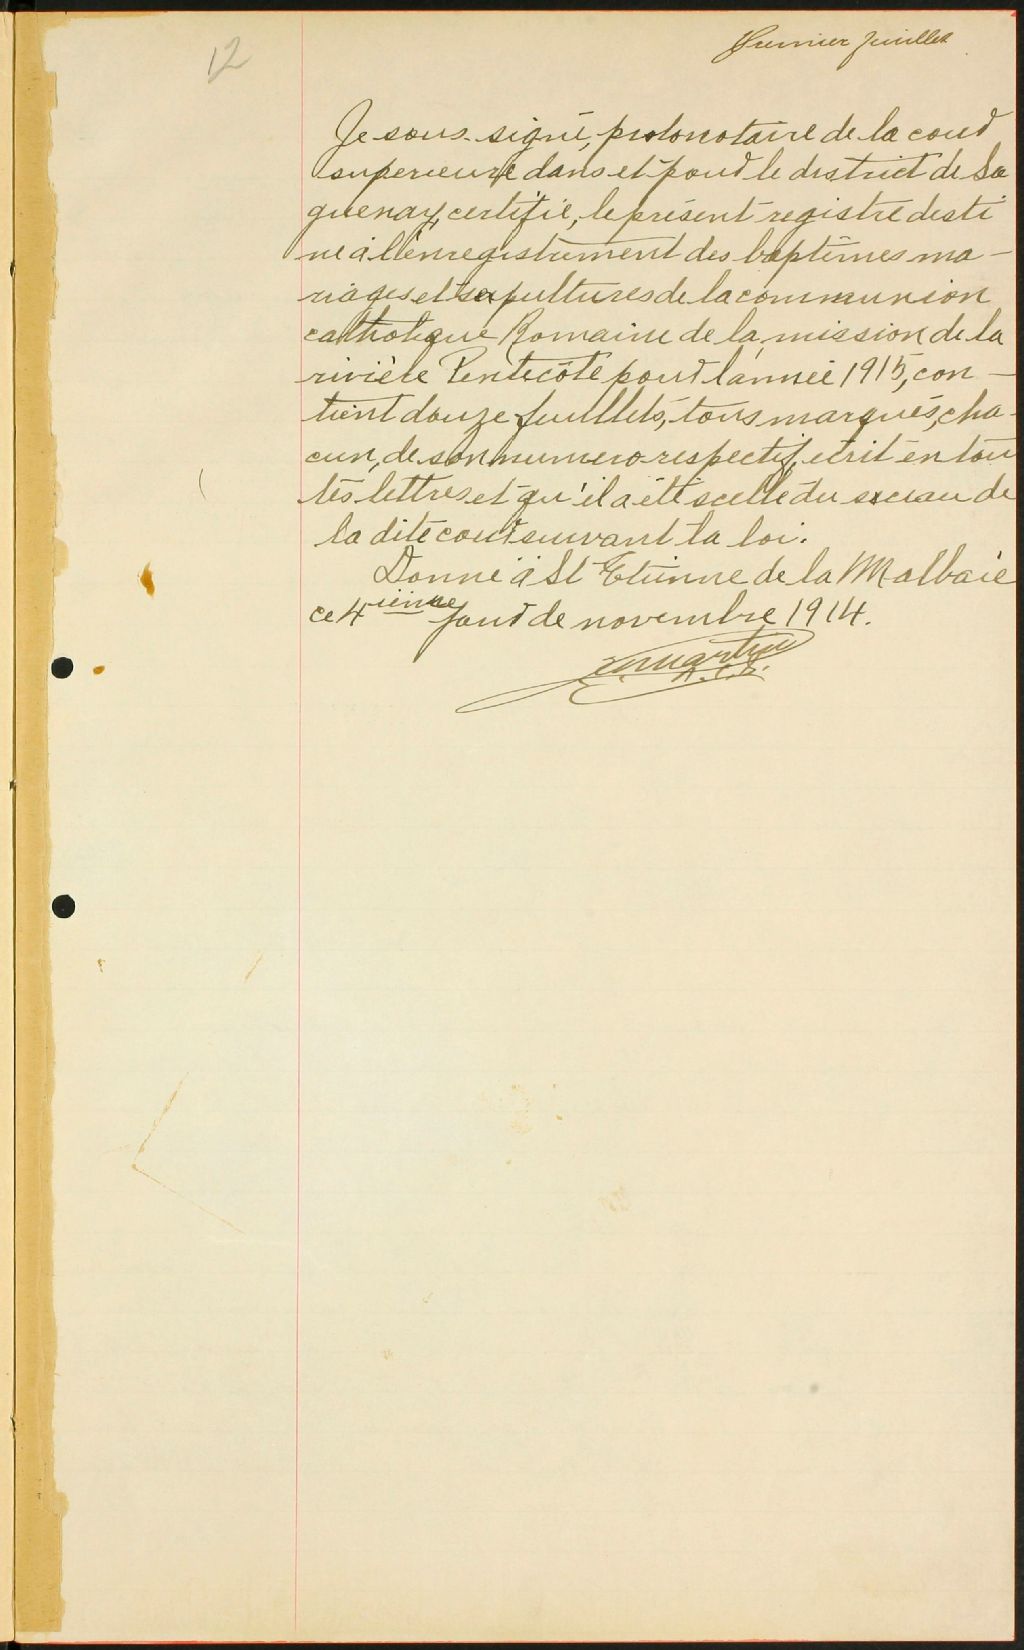 12
Premier feuillet
Je sous-signé, protonotaire de la cour
superieure dans et pour le district de Sa
guenay, certifie, le présent registre desti
né à l'enregistrement des baptêmes ma-
riages et sepultures de la communion
catholique Romaine de la mission de la
rivière Pentecôte pour l'année 1915, con-
tient douze feuillets, tous marqués, cha-
cun, de son numero respectif, écrit en tou
tes lettres et qu'il a été scellé du sceau de
la dite cour suivant la loi.
Donné à St Etienne de la Malbaie
ce 4ième jour de novembre 1914.